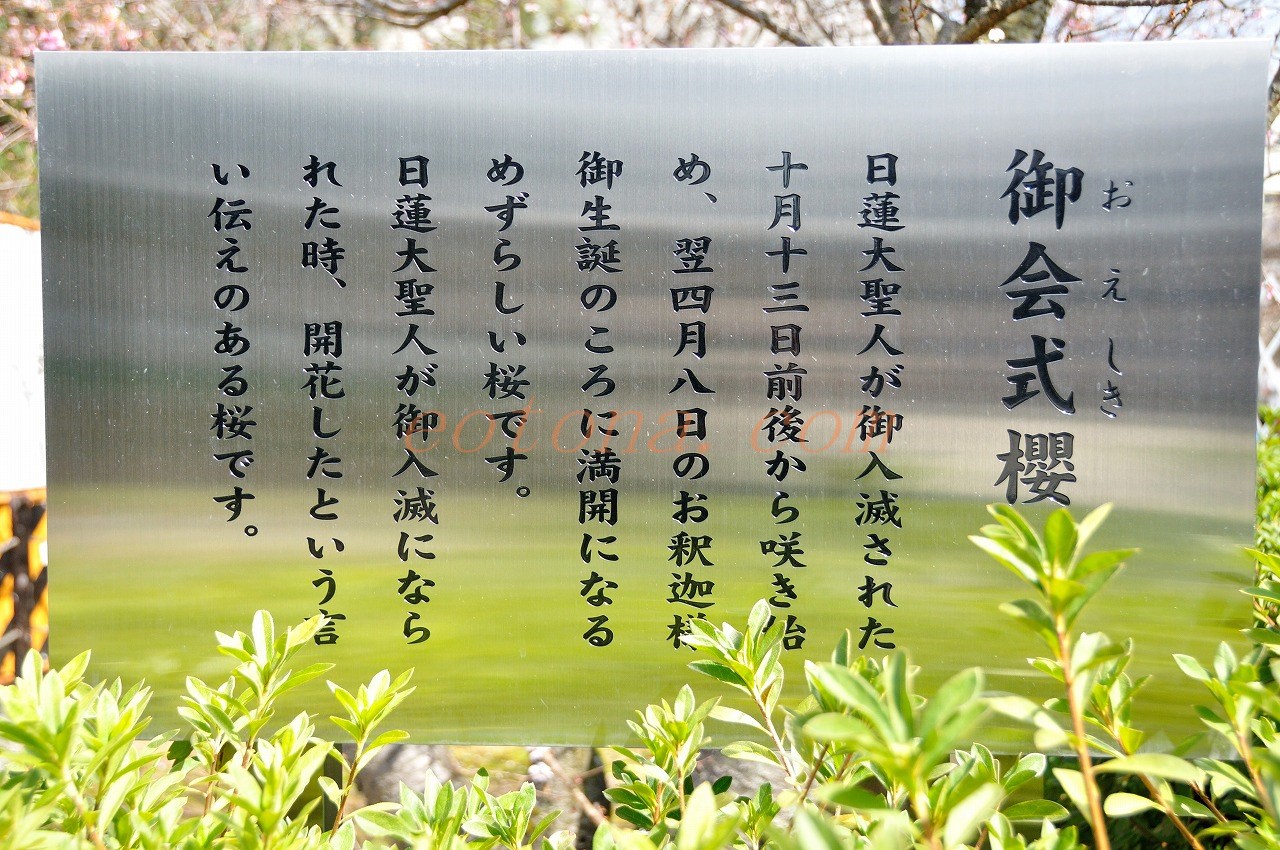 御会式櫻
おえしき
日蓮大聖人が御入滅された
十月十三日前後から咲き始
め、翌四月八日のお釈迦様
御生誕のころに満開になる
めずらしい桜です。
日蓮大聖人が御入滅になら
れた時、開花したという言
い伝えのある桜です。
eotona.com